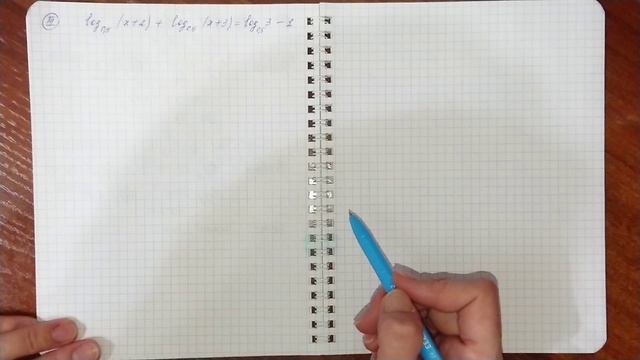 log₀,₅ (x+2) + log₀,₅ (x+3) = log₀,₅ 3 − 1